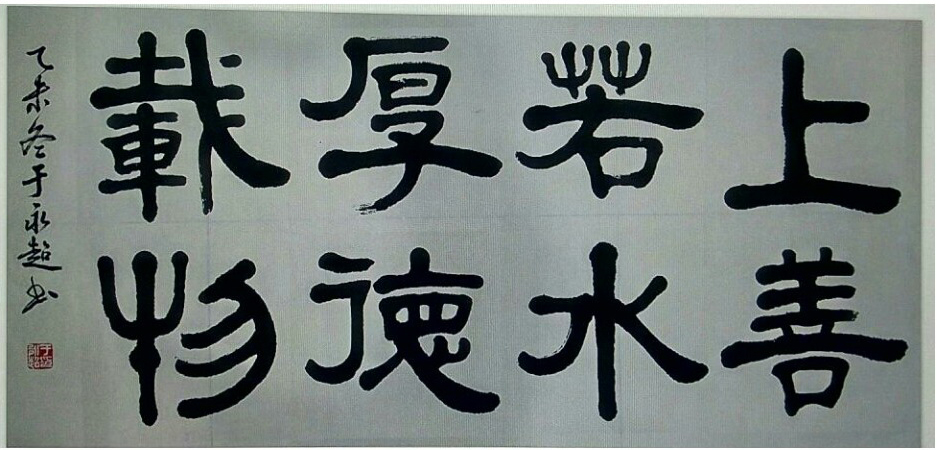 上善
若水
厚德
載物
乙未冬于永超书